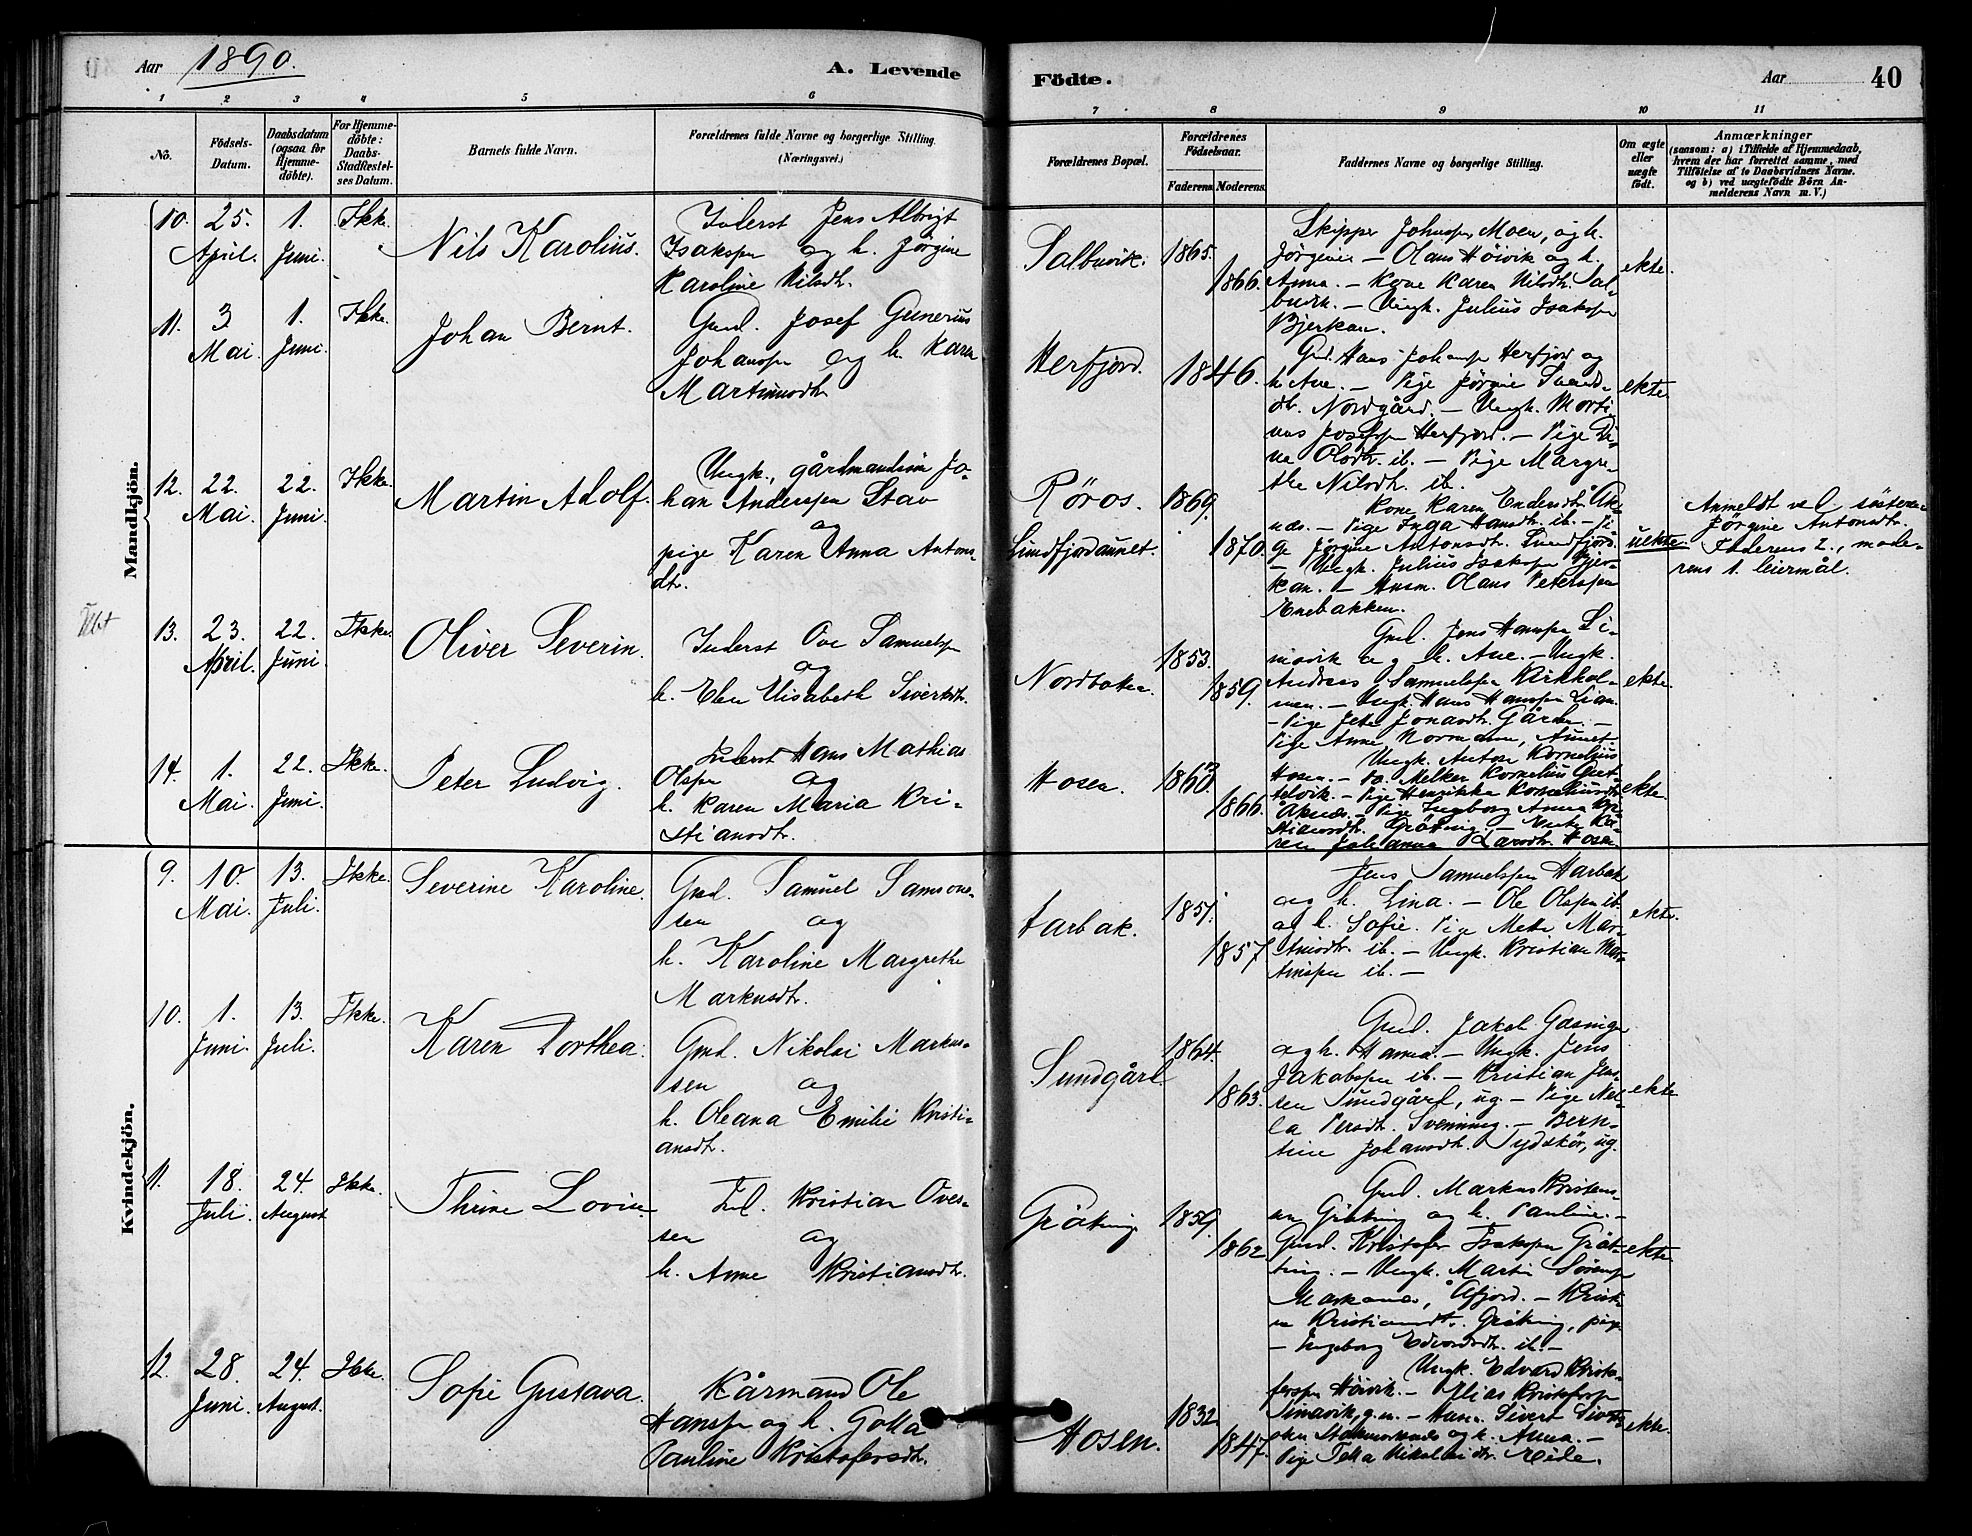 Aar 1890.
A. Levende
Födte.
Aar 40
1 2 3 4 5 6
7 8 9 10 11
No.
Födsels-
Datum.
Daabsdatum
(ogsaa for
Hjemme-
döbte).
For Hjemme-
döbte:
Daabs-
Stadfæstel-
ses Datum.
Barnets fulde Navn.
Forældrenes fulde Navne og borgerlige Stilling.
(Næringsvei.)
Forældrenes Bopæl.
Forældrenes
Födselsaar.
Faderens. Moderens.
Faddernes Navne og borgerlige Stilling.
Om ægte
eller
uægte
födt.
Anmærkninger
(saasom: a) i Tilfælde af Hjemmedaab,
hvem der har forrettet samme, med
Tilföielse af to Daabsvidners Navne.
og b) ved uægtefödte Börn An-
melderens Navn m. V.)
Mandkjön.
10. 25. April. 1. Juni. Ikke.
Nils Karolius.
Inderst Jens Albrigt
Isakspn og h. Jørgine
Karoline Nilsdtr.
1865.
1866.
Skipper Johnspn Moen, og h.
Jørgine - Olaus Höivik og h.
Anna. - Kone Karen Nilsdtr. Sal-
- Ungk. Julius Isakspn
Bjerkan.
ekte.
11. 3 Mai. 1. Juni. Ikke.
Johan Bernt.
Gmd. Josef Gunerius
Johanspn og h. Karen
Martinusdtr.
Herfjord. 1846.
Gmd. Hans Johanspn Herfjord og
h. Ane. - Pige Jørgine Svends-
dtr. Nordgård. - Ungk. Morti-
nus Josefspn Herfjord. - Pige Di-
na Olsdtr. ib. - Pige Margre-
the Nilsdtr. ib.
ekte.
12. 22. Mai. 22. Juni. Ikke.
Martin Adolf.
Ungk., gårdmandssön Jo-
han Anderspn Stav
og
pige Karen Anna Antons-
dtr.
Røros. 1869.
Lundfjordaunet. 1870.
Kone Karen Endersdtr.
- Pige Inga Hansdtr. ib. - Pi-
ge Jørgine Antonsdtr. Lundfjord.
- Ungk. Julius Isakspn Bjer-
kan. - Husm. Olaus Peterspn
Enebakken.
uekte.
Anmeldt ved söstere
Jørgine Antonsdtr.
Faderens 2., mode-
rens 1. leiermål.
13. 23. April. 22. Juni. Ikke.
Oliver Severin.
Inderst Ove Samuelspn
og
h. Elen Elisabeth Sivertsdtr.
1853.
1859.
Gmd. Jens Hanspn Li-
navik og h. Ane. - Ungk.
Andreas Samuelspn Kirkhol-
men. - Ungk. Hans Hanspn Lian
- Pige Jette Jonasdtr. Gården. -
Pige Anne Normann, Aunet
ekte.
14. 1. Mai. 22. Juni. Ikke.
Peter Ludvig.
Inderst Hans Mathias
Olspn og
h. Karen Maria Kri-
stiansdtr.
Hosen.
1866.
Ungk. Anton Kornelius
Hosen. - Melker Kornelius
- Pige Henrikka Korneliusdtr.
- Pige Ingeborg Anna Kri-
stiansdtr. Gråting. - Enke Ka-
ren Johanna Larsdtr. Hosen
ekte.
Kvindekjön.
9. 10. Mai. 13. Juli. Ikke.
Severine Karoline.
Gmd. Samuel Samson-
sen og
h. Karoline Margrethe
Markusdtr.
Harbak. 1851.
1857
Jens Samuelspn Harbak
og h. Lina. - Ole Olspn ib.
og h. Sofie. Pige Mette Mar-
tinsdtr. ib. - Ungk. Kristian Mar-
tinspn ib. -
ekte.
10. 1. Juni. 13. Juli. Ikke.
Karen Dorthea.
Gmd. Nikolai Markus-
sen og
h. Oleana Emilie Kristi-
ansdtr.
Sundgård 1864.
1863.
Gmd. Jakob Gasinge
og h. Hanna. - Ungk. Jens
Jakobspn ib. - Kristian Jen-
sen Sundgård, ug. - Pige Nel-
la Persdtr. Svenning. - Bern-
tine Johansdtr. Sydskör, ug.
ekte
11. 18. Juli. 24. August Ikke.
Thrine Lovise
Ind. Kristian Over-
sen og
h. Anne Kristiansdtr.
Gråting 1859.
1862
Gmd. Markus Kristen-
sen Gråting og h. Pauline. -
Gmd. Kristofer Isakspn Gråt-
ting. - Ungk. Martin Sörenspn
Åfjord. -
Kristiansdtr. Gråting, pige
- Ingeborg Edvardsdtr. ib. -
ekte
12. 28. Juni. 24. August. Ikke.
Sofie Gustava.
Kårmand Ole
Hanspn og h. Golla
Pauline Kristofersdtr.
Hosen. 1832
1847.
Ungk. Edvard Kristo-
ferspn Höivik. - Elias Kristoferspn
Linavik, g.m. - Sivert
og h. Anna. -
Pige Tella Nikolaidtr. Eide.
ekte.